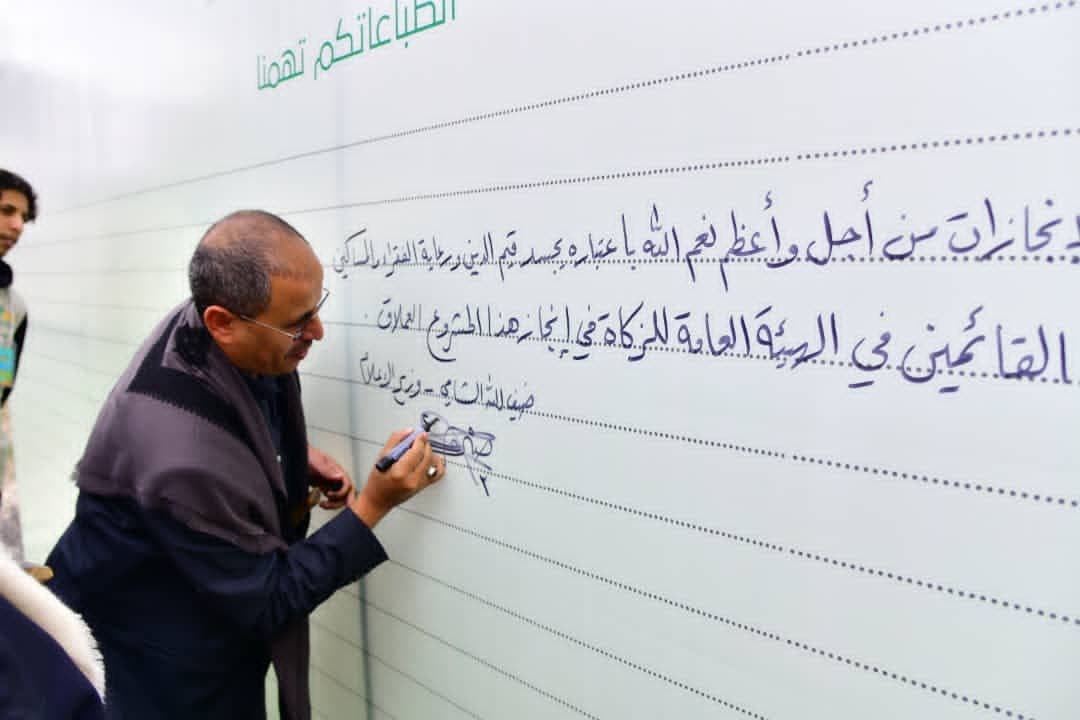 انطباعاتكم تهمنا
لإنجازات من أجل وأعظم نعم الله باعتباره يجسد قيم الدين ورعاية الفقراء والمساكين
القائمين في الهيئة العامة للزكاة في إنجاز هذا المشروع العملاق.
ضيف الله الشامي - وزير الإعلام